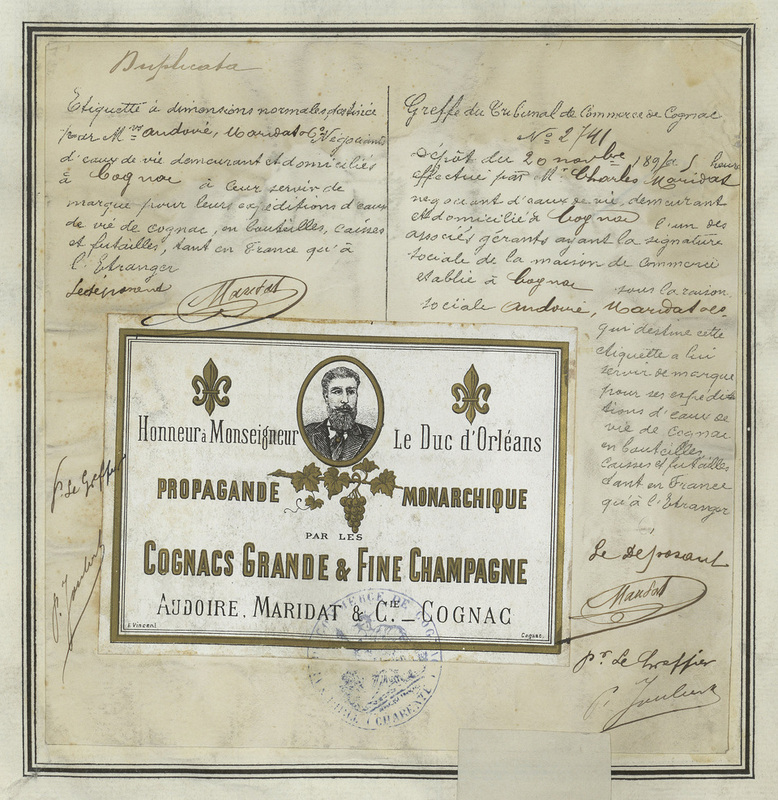 Duplicata
Etiquette à dimensions normales destinée
par Mrs Audoire, Maridat & Cie Négociants
d'eaux de vie demeurant et domiciliés
à Cognac à leur servir de
marque pour leurs expéditions d'eaux
de vie de cognac, en bouteilles, caisses
et futailles, tant en France qu'à
l'Etranger
Le déposant
Maridat
Greffe du Tribunal de Commerce de Cognac
No 2741
Dépôt du 20 novbre 189 à 5 heures
effectué par Mr Charles Maridat
négociant d'eaux de vie, demeurant
et domicilié à Cognac l'un des
associés gérants ayant la signature
sociale de la maison de commerce
établie à Cognac sous la raison
sociale Audoire, Maridat & Cie
qui destine cette
etiquette a lui
servir de marque
pour ses expédi-
tions d'eaux de
vie de cognac
en bouteilles
caisses et futailles
tant en France
qu'à l'Etranger
Le déposant
Maridat
pr Le Greffier
P. Joubert
p. Le Greffier
P. Joubert
Honneur à Monseigneur Le Duc d'Orléans
PROPAGANDE MONARCHIQUE
PAR LES
COGNACS GRANDE & FINE CHAMPAGNE
AUDOIRE, MARIDAT & CIE _ COGNAC
J. Vincent Cognac.
COMMERCE DE COGNAC
(CHARENTE)